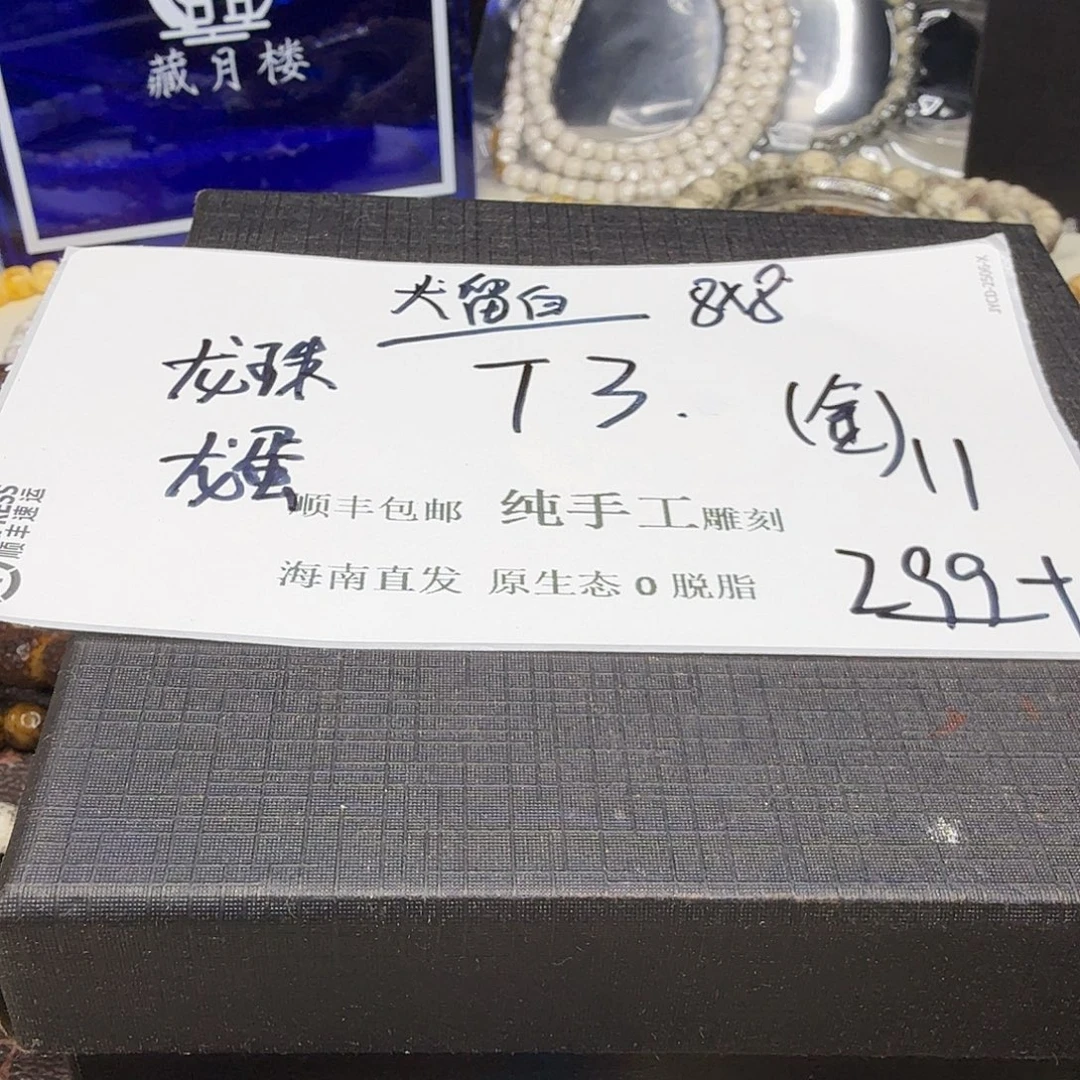 藏月楼
犬留白 8x8
龙珠 T3.
(金) 11
龙蛋
顺丰包邮 纯手工雕刻
海南直发 原生态0脱脂
299+
顺丰速运
JYCD-2506-X